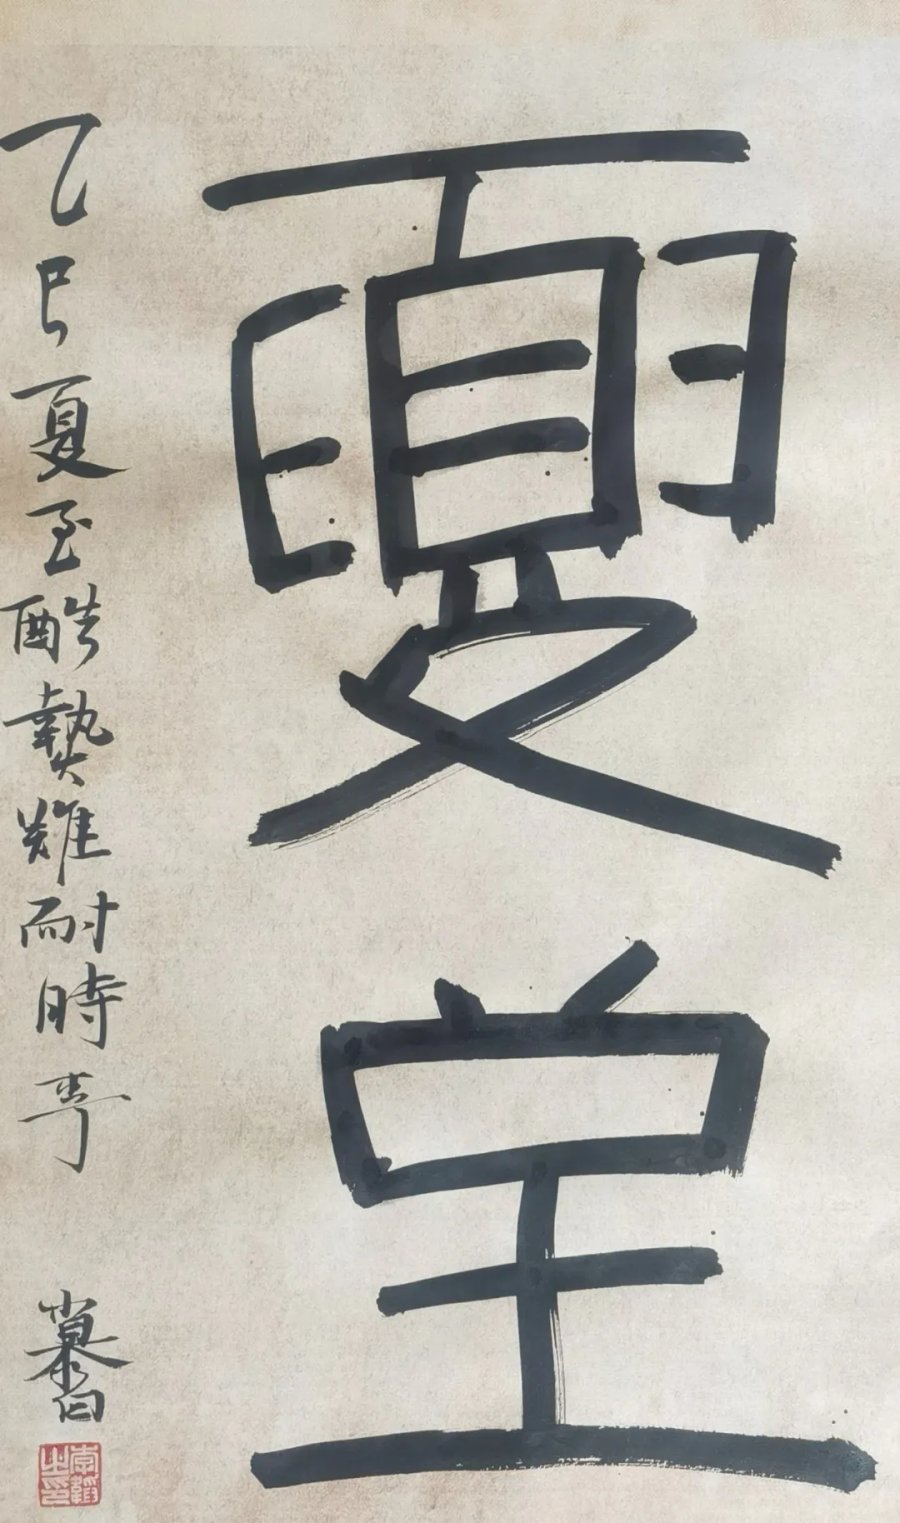 夏至
乙巳夏至酷熱難耐時書
慕白